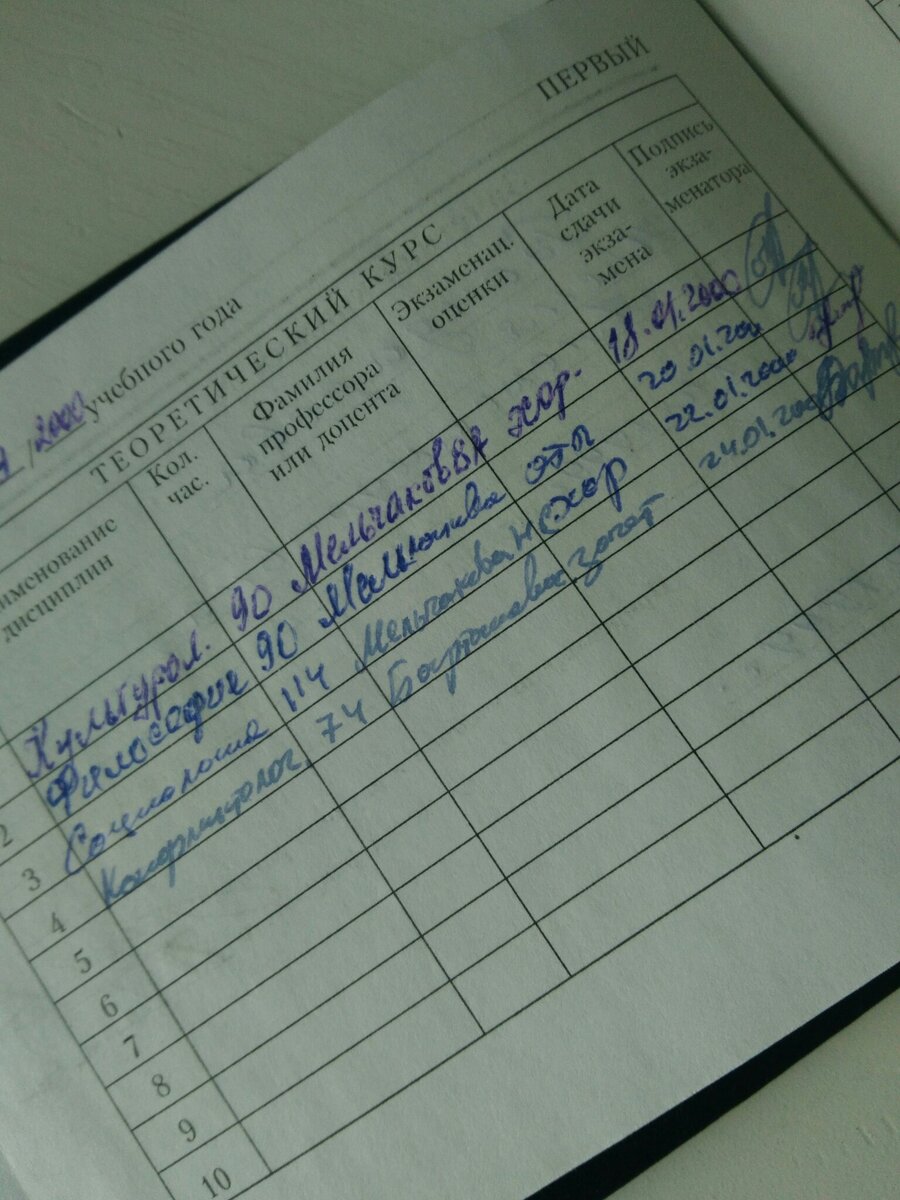 ПЕРВЫЙ
9/2000 учебного года
ТЕОРЕТИЧЕСКИЙ КУРС
именование дисциплин Кол. час. Фамилия профессора или доцента Экзаменац. оценки Дата сдачи экза-мена Подпись экза-менатора
Культурол. 90 Мельчакова хор. 18.01.2000
2 Философия 90 Мельчакова отл 20.01.200
3 Социология 114 Мельчакова Н хор 22.01.2000
4 Конфликтолог. 74 зачет 24.01.2000
5
6
7
8
9
10